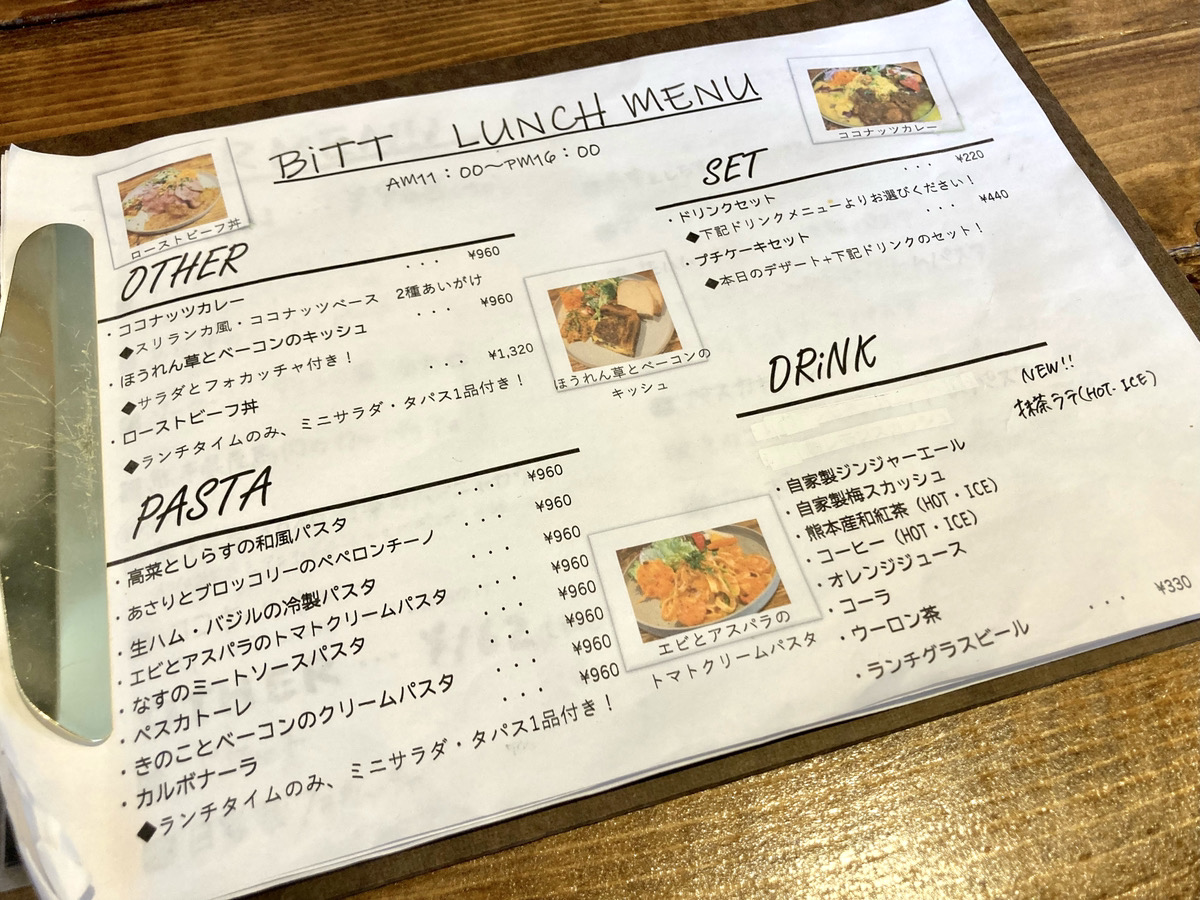 BiTT LUNCH MENU
AM11：00～PM16：00
ローストビーフ丼
ココナッツカレー
OTHER
・ココナッツカレー ... ¥960
◆スリランカ風・ココナッツベース 2種あいがけ
・ほうれん草とベーコンのキッシュ ... ¥960
◆サラダとフォカッチャ付き！
・ローストビーフ丼 ... ¥1,320
◆ランチタイムのみ、ミニサラダ・タパス1品付き！
ほうれん草とベーコンの
キッシュ
PASTA
・高菜としらすの和風パスタ ... ¥960
・あさりとブロッコリーのペペロンチーノ ... ¥960
・生ハム・バジルの冷製パスタ ... ¥960
・エビとアスパラのトマトクリームパスタ ... ¥960
・なすのミートソースパスタ ... ¥960
・ペスカトーレ ... ¥960
・きのことベーコンのクリームパスタ ... ¥960
・カルボナーラ ... ¥960
◆ランチタイムのみ、ミニサラダ・タパス1品付き！
エビとアスパラの
トマトクリームパスタ
SET
・ドリンクセット ... ¥220
◆下記ドリンクメニューよりお選びください！
・プチケーキセット ... ¥440
◆本日のデザート+下記ドリンクのセット！
DRiNK
NEW!!
抹茶ラテ(HOT・ICE)
・自家製ジンジャーエール
・自家製梅スカッシュ
・熊本産和紅茶（HOT・ICE)
・コーヒー（HOT・ICE)
・オレンジジュース
・コーラ
・ウーロン茶
・ランチグラスビール ... ¥330